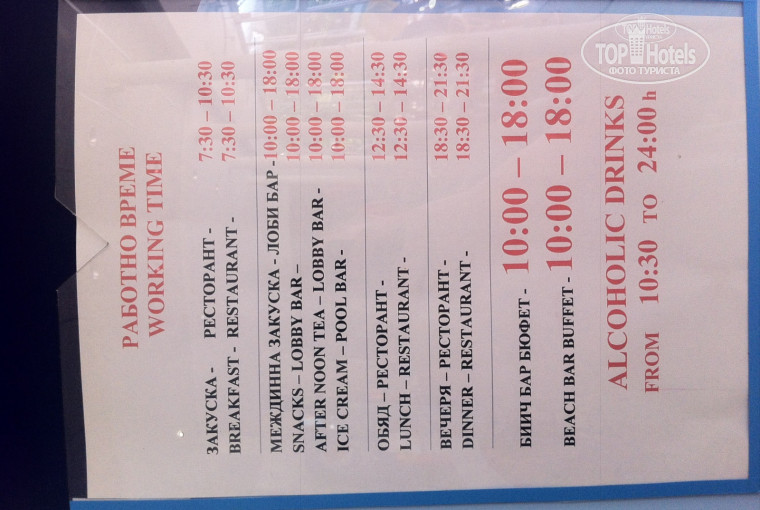 РАБОТНО ВРЕМЕ
WORKING TIME
ЗАКУСКА - РЕСТОРАНТ - 7:30 – 10:30
BREAKFAST - RESTAURANT - 7:30 – 10:30
МЕЖДИННА ЗАКУСКА - ЛОБИ БАР -10:00 – 18:00
SNACKS – LOBBY BAR – 10:00 – 18:00
AFTER NOON TEA – LOBBY BAR - 10:00 – 18:00
ICE CREAM – POOL BAR - 10:00 – 18:00
ОБЯД – РЕСТОРАНТ - 12:30 – 14:30
LUNCH – RESTAURANT - 12:30 – 14:30
ВЕЧЕРЯ – РЕСТОРАНТ - 18:30 – 21:30
DINNER – RESTAURANT - 18:30 – 21:30
БИИЧ БАР БЮФЕТ - 10:00 – 18:00
BEACH BAR BUFFET - 10:00 – 18:00
ALCOHOLIC DRINKS
FROM 10:30 TO 24:00 h
TOP Hotels
ФОТО ТУРИСТА